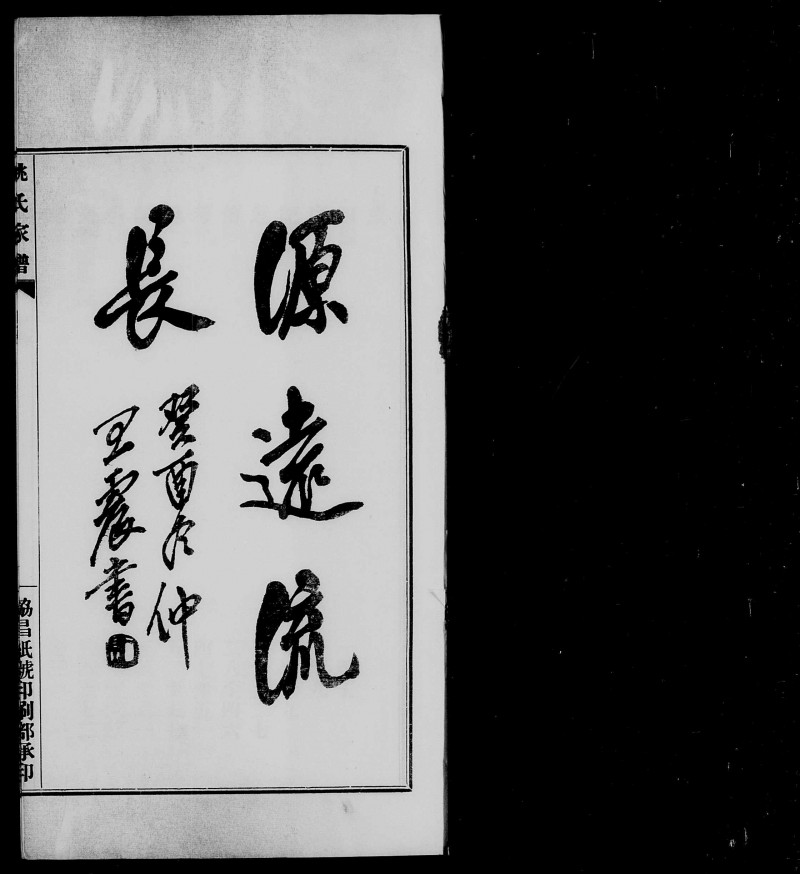 源遠流
長
癸酉冬仲
王震書
姚氏家譜
協昌紙號印刷部承印